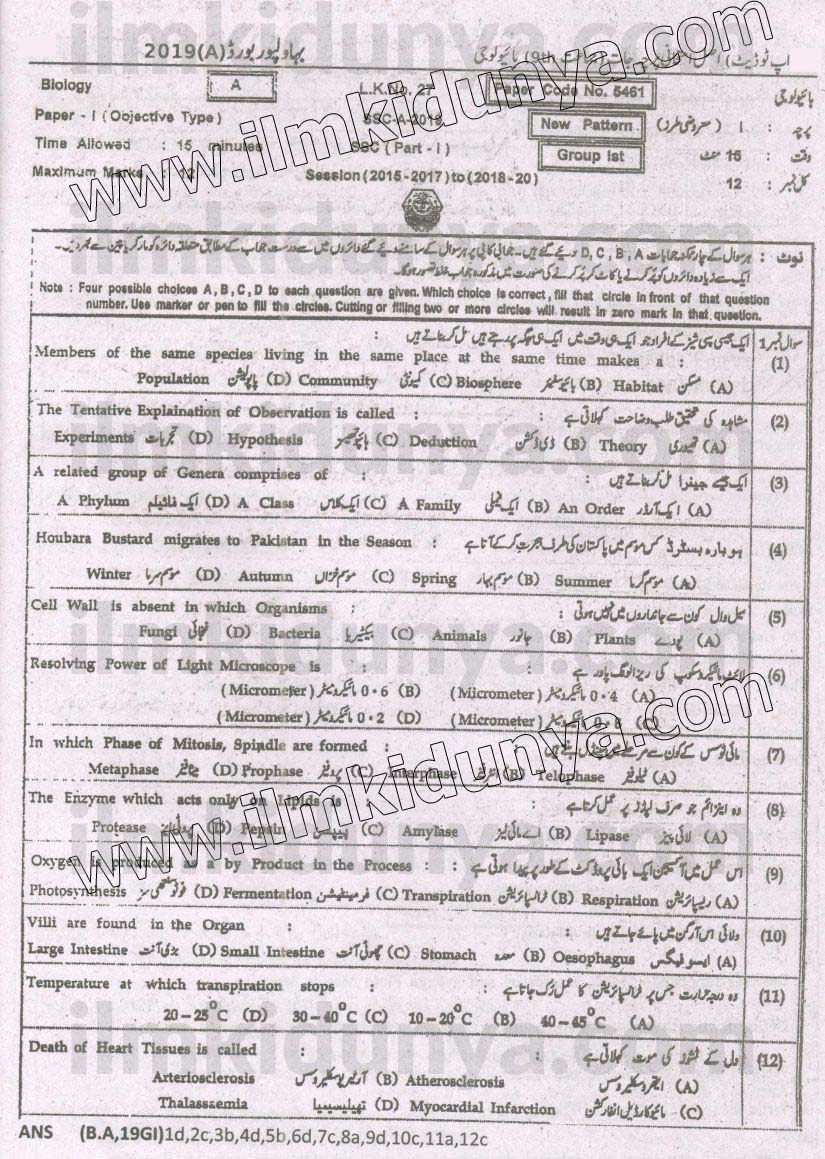 بہاولپور بورڈ 2019(A)
Biology A L.K.No. 27 Paper Code No. 5461 بائیولوجی
Paper - I (Objective Type) SSC-A-2019 New Pattern پرچہ : I (معروضی طرز)
Time Allowed : 15 minutes SSC (Part - I) Group Ist وقت : 15 منٹ
Maximum Marks : 12 Session (2015 -2017) to (2018 -20) کل نمبر : 12
نوٹ : ہر سوال کے چار ممکنہ جوابات D, C, B, A دیئے گئے ہیں۔ جوابی کاپی پر ہر سوال کے سامنے دیئے گئے دائروں میں سے درست جواب کے مطابق متعلقہ دائرہ کو مارکر یا پین سے بھر دیں۔
ایک سے زیادہ دائروں کو پُر کرنے یا کاٹ کر پُر کرنے کی صورت میں مذکورہ جواب غلط تصور ہوگا۔
Note : Four possible choices A, B, C, D to each question are given. Which choice is correct, fill that circle in front of that question
number. Use marker or pen to fill the circles. Cutting or filling two or more circles will result in zero mark in that question.
سوال نمبر 1 ایک جیسی سپی شیز کے افراد جو ایک ہی وقت میں ایک ہی جگہ پر رہتے ہیں مل کر بناتے ہیں :
Members of the same species living in the same place at the same time makes a : (1)
Population پاپولیشن (D) Community کمیونٹی (C) Biosphere بائیوسفیئر (B) Habitat مسکن (A)
The Tentative Explaination of Observation is called : مشاہدہ کی تحقیق طلب وضاحت کہلاتی ہے : (2)
Experiments تجربات (D) Hypothesis ہائپوتھیسز (C) Deduction ڈیڈکشن (B) Theory تھیوری (A)
A related group of Genera comprises of : ایک جیسے جینرا مل کر بناتے ہیں : (3)
A Phylum ایک فائیلم (D) A Class ایک کلاس (C) A Family ایک فیملی (B) An Order ایک آرڈر (A)
Houbara Bustard migrates to Pakistan in the Season : ہوبارہ بسٹرڈ کس موسم میں پاکستان کی طرف ہجرت کر کے آتا ہے (4)
Winter موسم سرما (D) Autumn موسم خزاں (C) Spring موسم بہار (B) Summer موسم گرما (A)
Cell Wall is absent in which Organisms : سیل وال کون سے جانداروں میں نہیں ہوتی : (5)
Fungi فنجائی (D) Bacteria بیکٹیریا (C) Animals جانور (B) Plants پودے (A)
Resolving Power of Light Microscope is : لائٹ مائیکروسکوپ کی ریزالونگ پاور ہے (6)
(Micrometer) مائیکرومیٹر 0·6 (B) (Micrometer) مائیکرومیٹر 0·4 (A)
(Micrometer) مائیکرومیٹر 0·2 (D) (Micrometer) مائیکرومیٹر 0·8 (C)
In which Phase of Mitosis, Spindle are formed : مائی ٹوسس کے کون سے مرحلے میں سپنڈل بنتے ہیں (7)
Metaphase میٹافیز (D) Prophase پروفیز (C) Interphase انٹرفیز (B) Telophase ٹیلوفیز (A)
The Enzyme which acts only on Lipids is : وہ اینزائم جو صرف لپڈز پر عمل کرتا ہے : (8)
Protease پروٹی ایز (D) Pepsin پیپسن (C) Amylase اے مائی لیز (B) Lipase لائی پیز (A)
Oxygen is produced as a by Product in the Process : اس عمل میں آکسیجن ایک بائی پروڈکٹ کے طور پر پیدا ہوتی ہے : (9)
Photosynthesis فوٹو سنتھی سز (D) Fermentation فرمینٹیشن (C) Transpiration ٹرانسپائریشن (B) Respiration ریسپائریشن (A)
Villi are found in the Organ : ولائی اس آرگن میں پائے جاتے ہیں : (10)
Large Intestine بڑی آنت (D) Small Intestine چھوٹی آنت (C) Stomach معدہ (B) Oesophagus ایسوفیگس (A)
Temperature at which transpiration stops : وہ درجہ حرارت جس پر ٹرانسپائریشن کا عمل رُک جاتا ہے : (11)
20 – 25°C (D) 30 – 40°C (C) 10 – 20°C (B) 40 – 45°C (A)
Death of Heart Tissues is called : دل کے ٹشوز کی موت کہلاتی ہے : (12)
Arteriosclerosis آرٹیریوسکلیروسس (B) Atherosclerosis ایتھروسکلیروسس (A)
Thalassaemia تھیلیسیمیا (D) Myocardial Infarction مائیوکارڈیل انفارکشن (C)
ANS (B.A,19GI)1d,2c,3b,4d,5b,6d,7c,8a,9d,10c,11a,12c
www.ilmkidunya.com
www.ilmkidunya.com
ilmkidunya.com
ilmkidunya.com
ilmkidunya.com
ilmkidunya.com
ilmkidunya.com
ilmkidunya.com